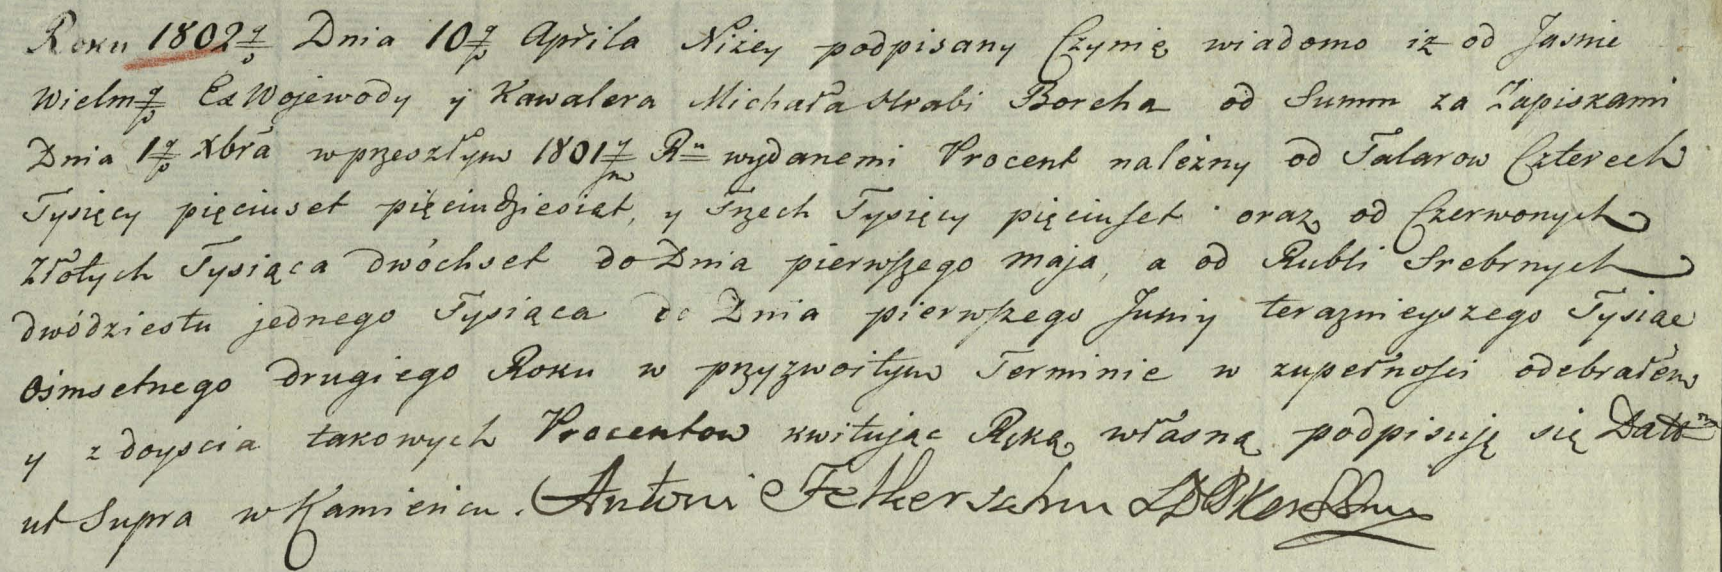 Roku 1802go Dnia 10go Aprila Niżey podpisany Czynię wiadomo iż od Jasnie
Wielmgo Ex Wojewody y Kawalera Michała Hrabi Borcha od Summ za Zapiskami
Dnia 1go Xbra w przeszłym 1801ym Ru wydanemi Procent należny od Talarow Czterech
Tysięcy pięciuset pięciudziesiąt, y Trzech Tysięcy pięciuset oraz od Czerwonych
Złotych Tysiąca dwóchset do Dnia pierwszego maja, a od Rubli Srebrnych
dwódziestu jednego Tysiąca do Dnia pierwszego Juniy teraznieyszego Tysiąc
ośmsetnego drugiego Roku w przyzwoitym Terminie w zupełności odebrałem
y z doyscia takowych Procentow kwitując Ręką własną podpisuję się Dattm
ut Supra w Kamieńcu. Antoni Felkerschm